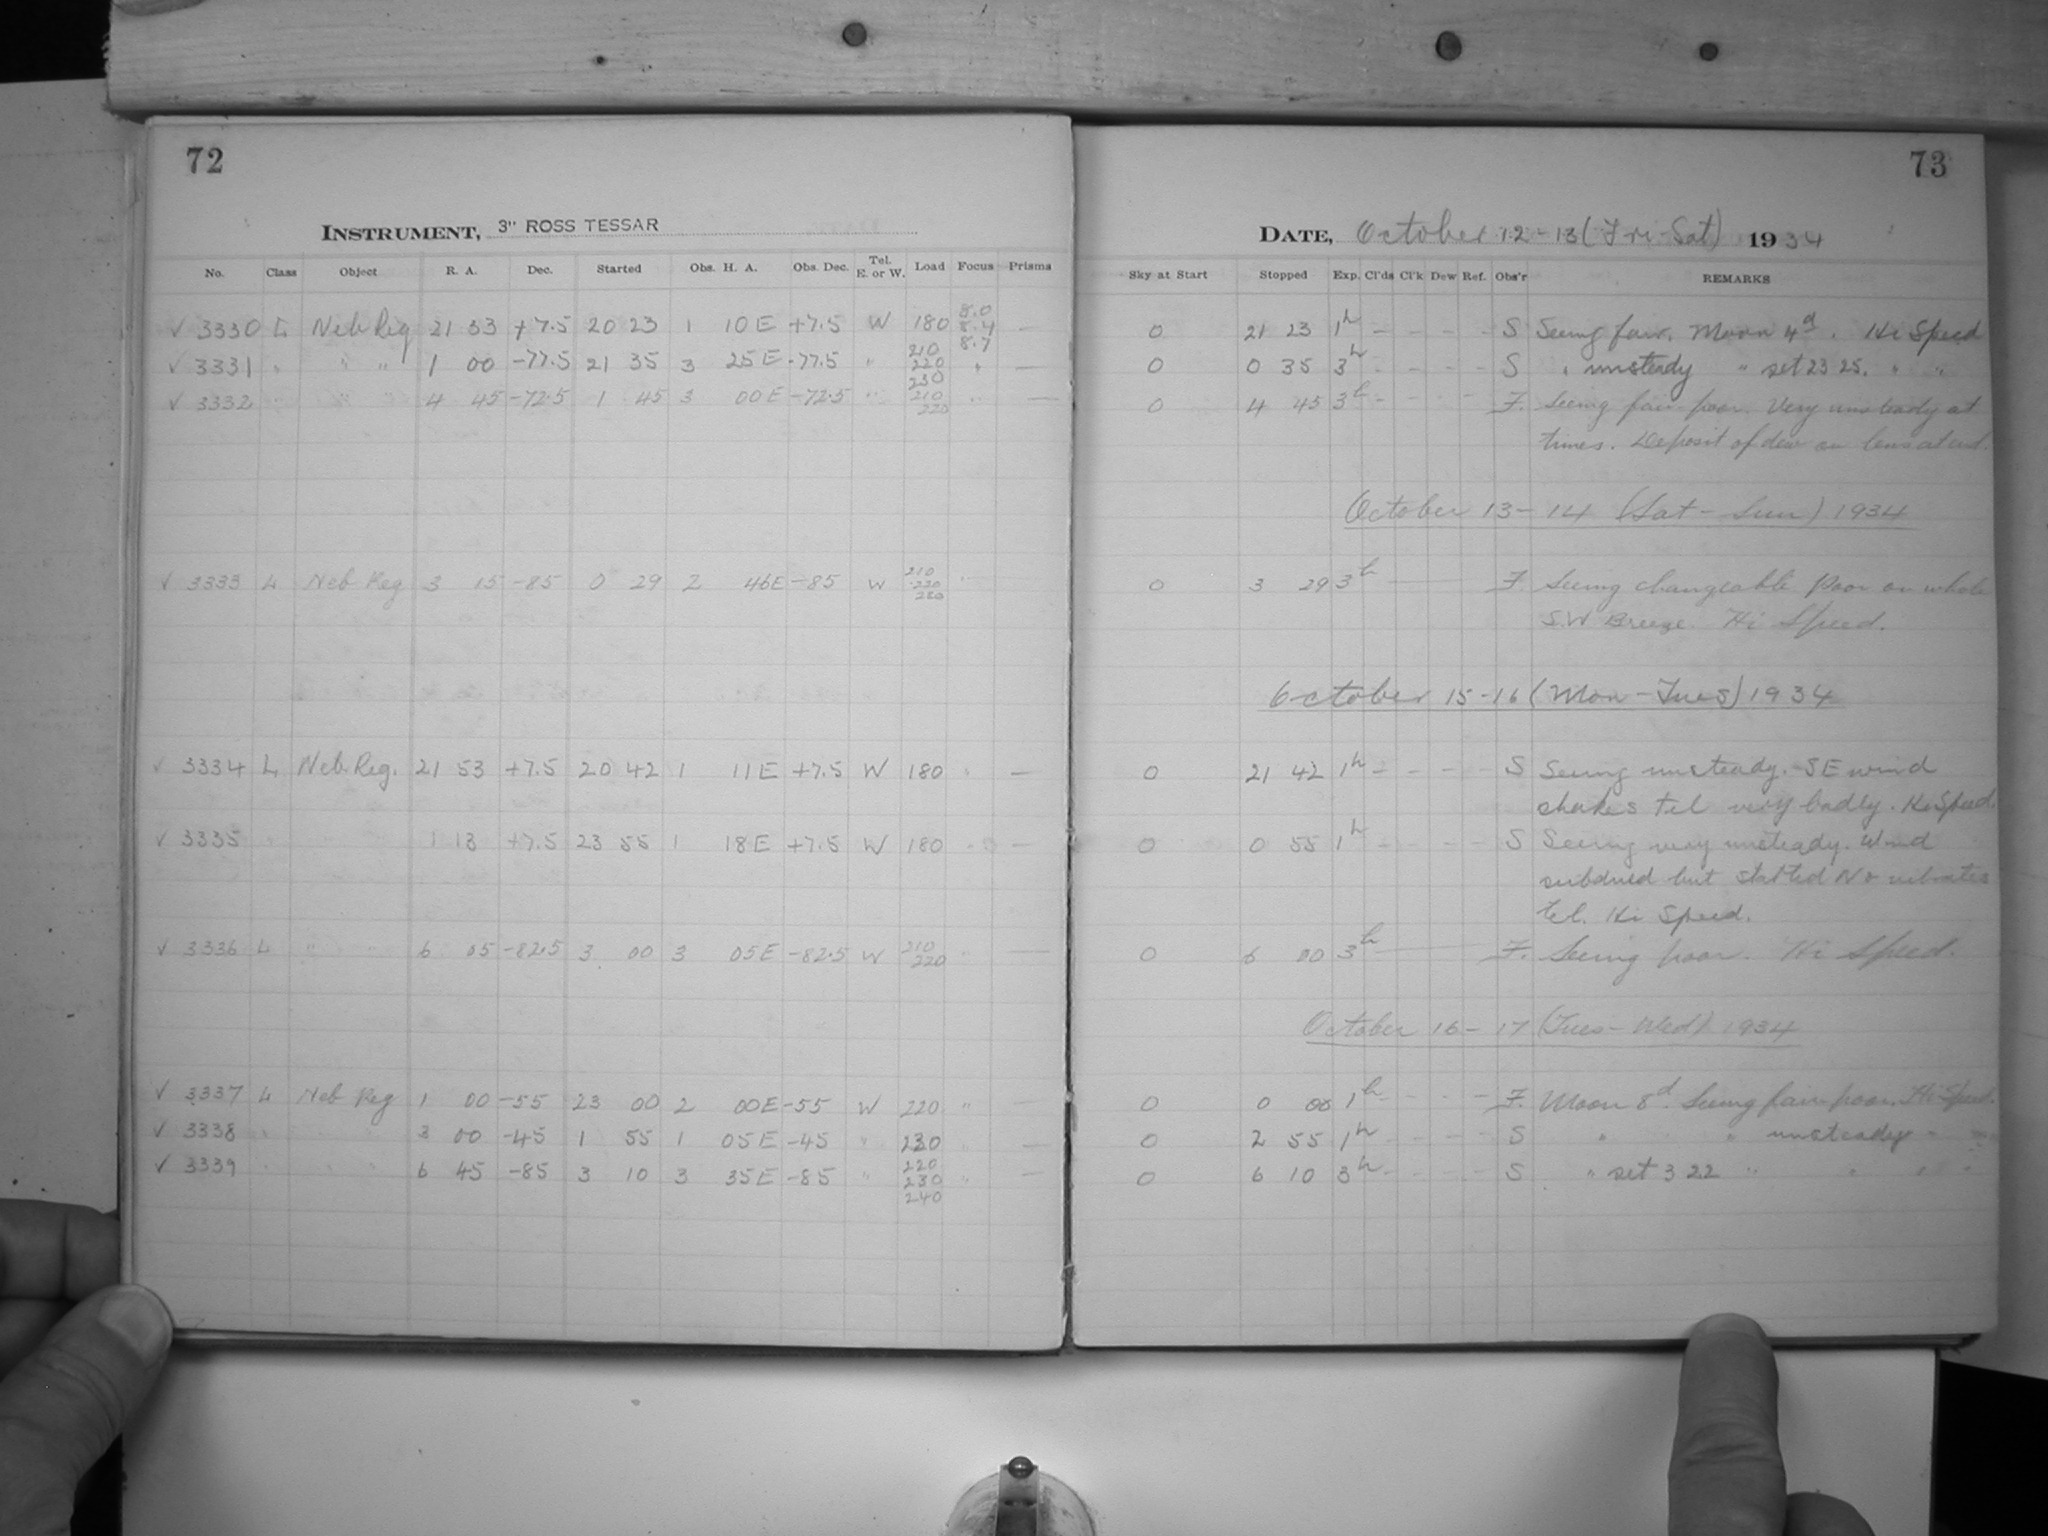 72
INSTRUMENT, 3" ROSS TESSAR
No. Class Object R. A. Dec. Started Obs. H. A. Obs. Dec. Tel. E. or W. Load Focus Prisms
√ 3330 L Neb Reg 21 53 +7.5 20 23 1 10 E +7.5 W 180 8.0 8.4 8.7 —
√ 3331 " " " 1 00 -77.5 21 35 3 25 E -77.5 " 210 220 230 " —
√ 3332 " " " 4 45 -72.5 1 45 3 00 E -72.5 " 210 220 " —
√ 3333 L Neb Reg 3 15 -85 0 29 2 46 E -85 W 210 220 230 "
√ 3334 L Neb. Reg. 21 53 +7.5 20 42 1 11 E +7.5 W 180 " —
√ 3335 " " " 1 13 +7.5 23 55 1 18 E +7.5 W 180 —
√ 3336 L " " 6 05 -82.5 3 00 3 05 E -82.5 W 210 220 " —
√ 3337 L Neb Reg 1 00 -55 23 00 2 00 E -55 W 220 " —
√ 3338 " " " 3 00 -45 1 55 1 05 E -45 " 230 " —
√ 3339 " " " 6 45 -85 3 10 3 35 E -85 " 220 230 240 " —
73
DATE, October 12-13 (Fri-Sat) 1934
Sky at Start Stopped Exp. Cl'ds Cl'k Dew Ref. Obs'r REMARKS
0 21 23 1h - - - - S Seeing fair. Moon 4d. Hi Speed
0 0 35 3h - - - - S " unsteady " set 23 25. " "
0 4 45 3h - - - - F. Seeing fair-poor. Very unsteady at
times. Deposit of dew on lens at end.
October 13-14 (Sat-Sun) 1934
0 3 29 3h — F. Seeing changeable Poor on whole
S.W Breeze. Hi Speed.
October 15-16 (Mon-Tues) 1934
0 21 42 1h - - - - S Seeing unsteady. SE wind
shakes tel very badly. Hi Speed.
0 0 55 1h - - - - S Seeing very unsteady. Wind
subdued but started No vibrates
tel. Hi Speed.
0 6 00 3h — F. Seeing poor. Hi Speed.
October 16-17 (Tues-Wed) 1934
0 0 00 1h - - - - F. Moon 8d. Seeing fair-poor. Hi-Speed.
0 2 55 1h - - - - S " " unsteady " "
0 6 10 3h - - - - S " set 3 22 " " " "